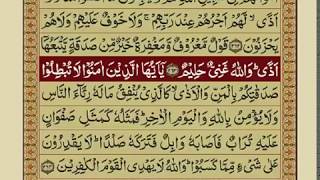 اَذًىۙ لَّهُمْ اَجْرُهُمْ عِنْدَ رَبِّهِمْۚ وَلَا خَوْفٌ عَلَيْهِمْ وَلَا هُمْ
يَحْزَنُوْنَ ۝۲۶۲ قَوْلٌ مَّعْرُوْفٌ وَّمَغْفِرَةٌ خَيْرٌ مِّنْ صَدَقَةٍ يَّتْبَعُهَاۤ
اَذًىؕ وَاللّٰهُ غَنِىٌّ حَلِيْمٌ ۝۲۶۳ يٰۤاَيُّهَا الَّذِيْنَ اٰمَنُوْا لَا تُبْطِلُوْا
صَدَقٰتِكُمْ بِالْمَنِّ وَالْاَذٰىۙ كَالَّذِىْ يُنْفِقُ مَالَهٗ رِئَآءَ النَّاسِ
وَلَا يُؤْمِنُ بِاللّٰهِ وَالْيَوْمِ الْاٰخِرِؕ فَمَثَلُهٗ كَمَثَلِ صَفْوَانٍ
عَلَيْهِ تُرَابٌ فَاَصَابَهٗ وَابِلٌ فَتَرَكَهٗ صَلْدًاؕ لَا يَقْدِرُوْنَ
عَلٰى شَىْءٍ مِّمَّا كَسَبُوْاؕ وَاللّٰهُ لَا يَهْدِى الْقَوْمَ الْكٰفِرِيْنَ ۝۲۶۴